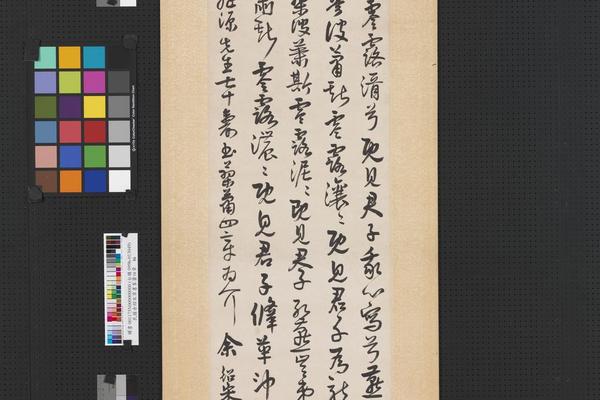 零露湑兮既見君子我心寫兮燕
彼蕭斯零露瀼〻既見君子為龍
蓼彼蕭斯零露泥〻既見君子孔燕豈弟
蕭斯零露濃〻既見君子鞗革沖
源先生七十壽書蓼蕭四章為介 余紹宋